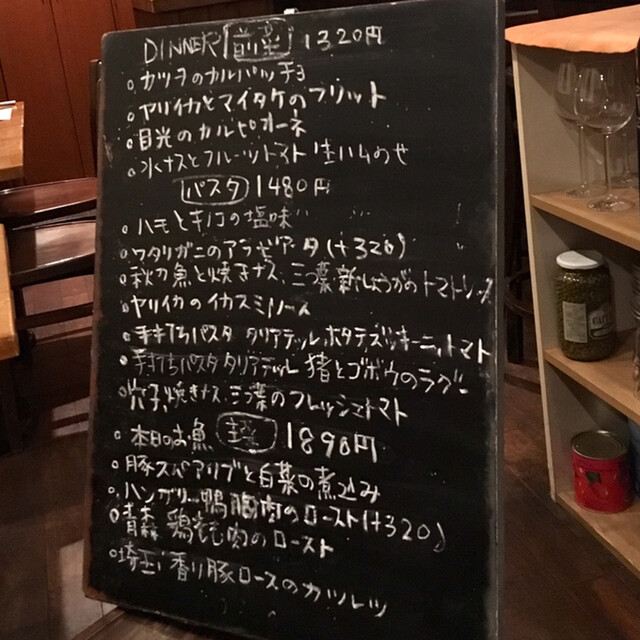 DINNER 前菜 1320円
。カツヲのカルパッチョ
。ヤリイカとマイタケのフリット
。目光のカルピオーネ
。水ナスとフルーツトマト 生ハムのせ
パスタ 1480円
。ハモとキノコの塩味
。ワタリガニのアラビアータ(+320)
。秋刀魚と焼きナス、三つ葉、新しょうがのトマトソース
。ヤリイカのイカスミソース
。手打ちパスタ タリアテッレ ホタテ ズッキーニ、トマト
。手打ちパスタ タリアテッレ 猪とゴボウのラグー
。穴子、焼きナス、三つ葉のフレッシュトマト
。本日のお魚 主菜 1890円
。豚スペアリブと白菜の煮込み
。ハンガリー鴨胸肉のロースト(+320)
。青森 鶏もも肉のロースト
。埼玉 香り豚ロースのカツレツ